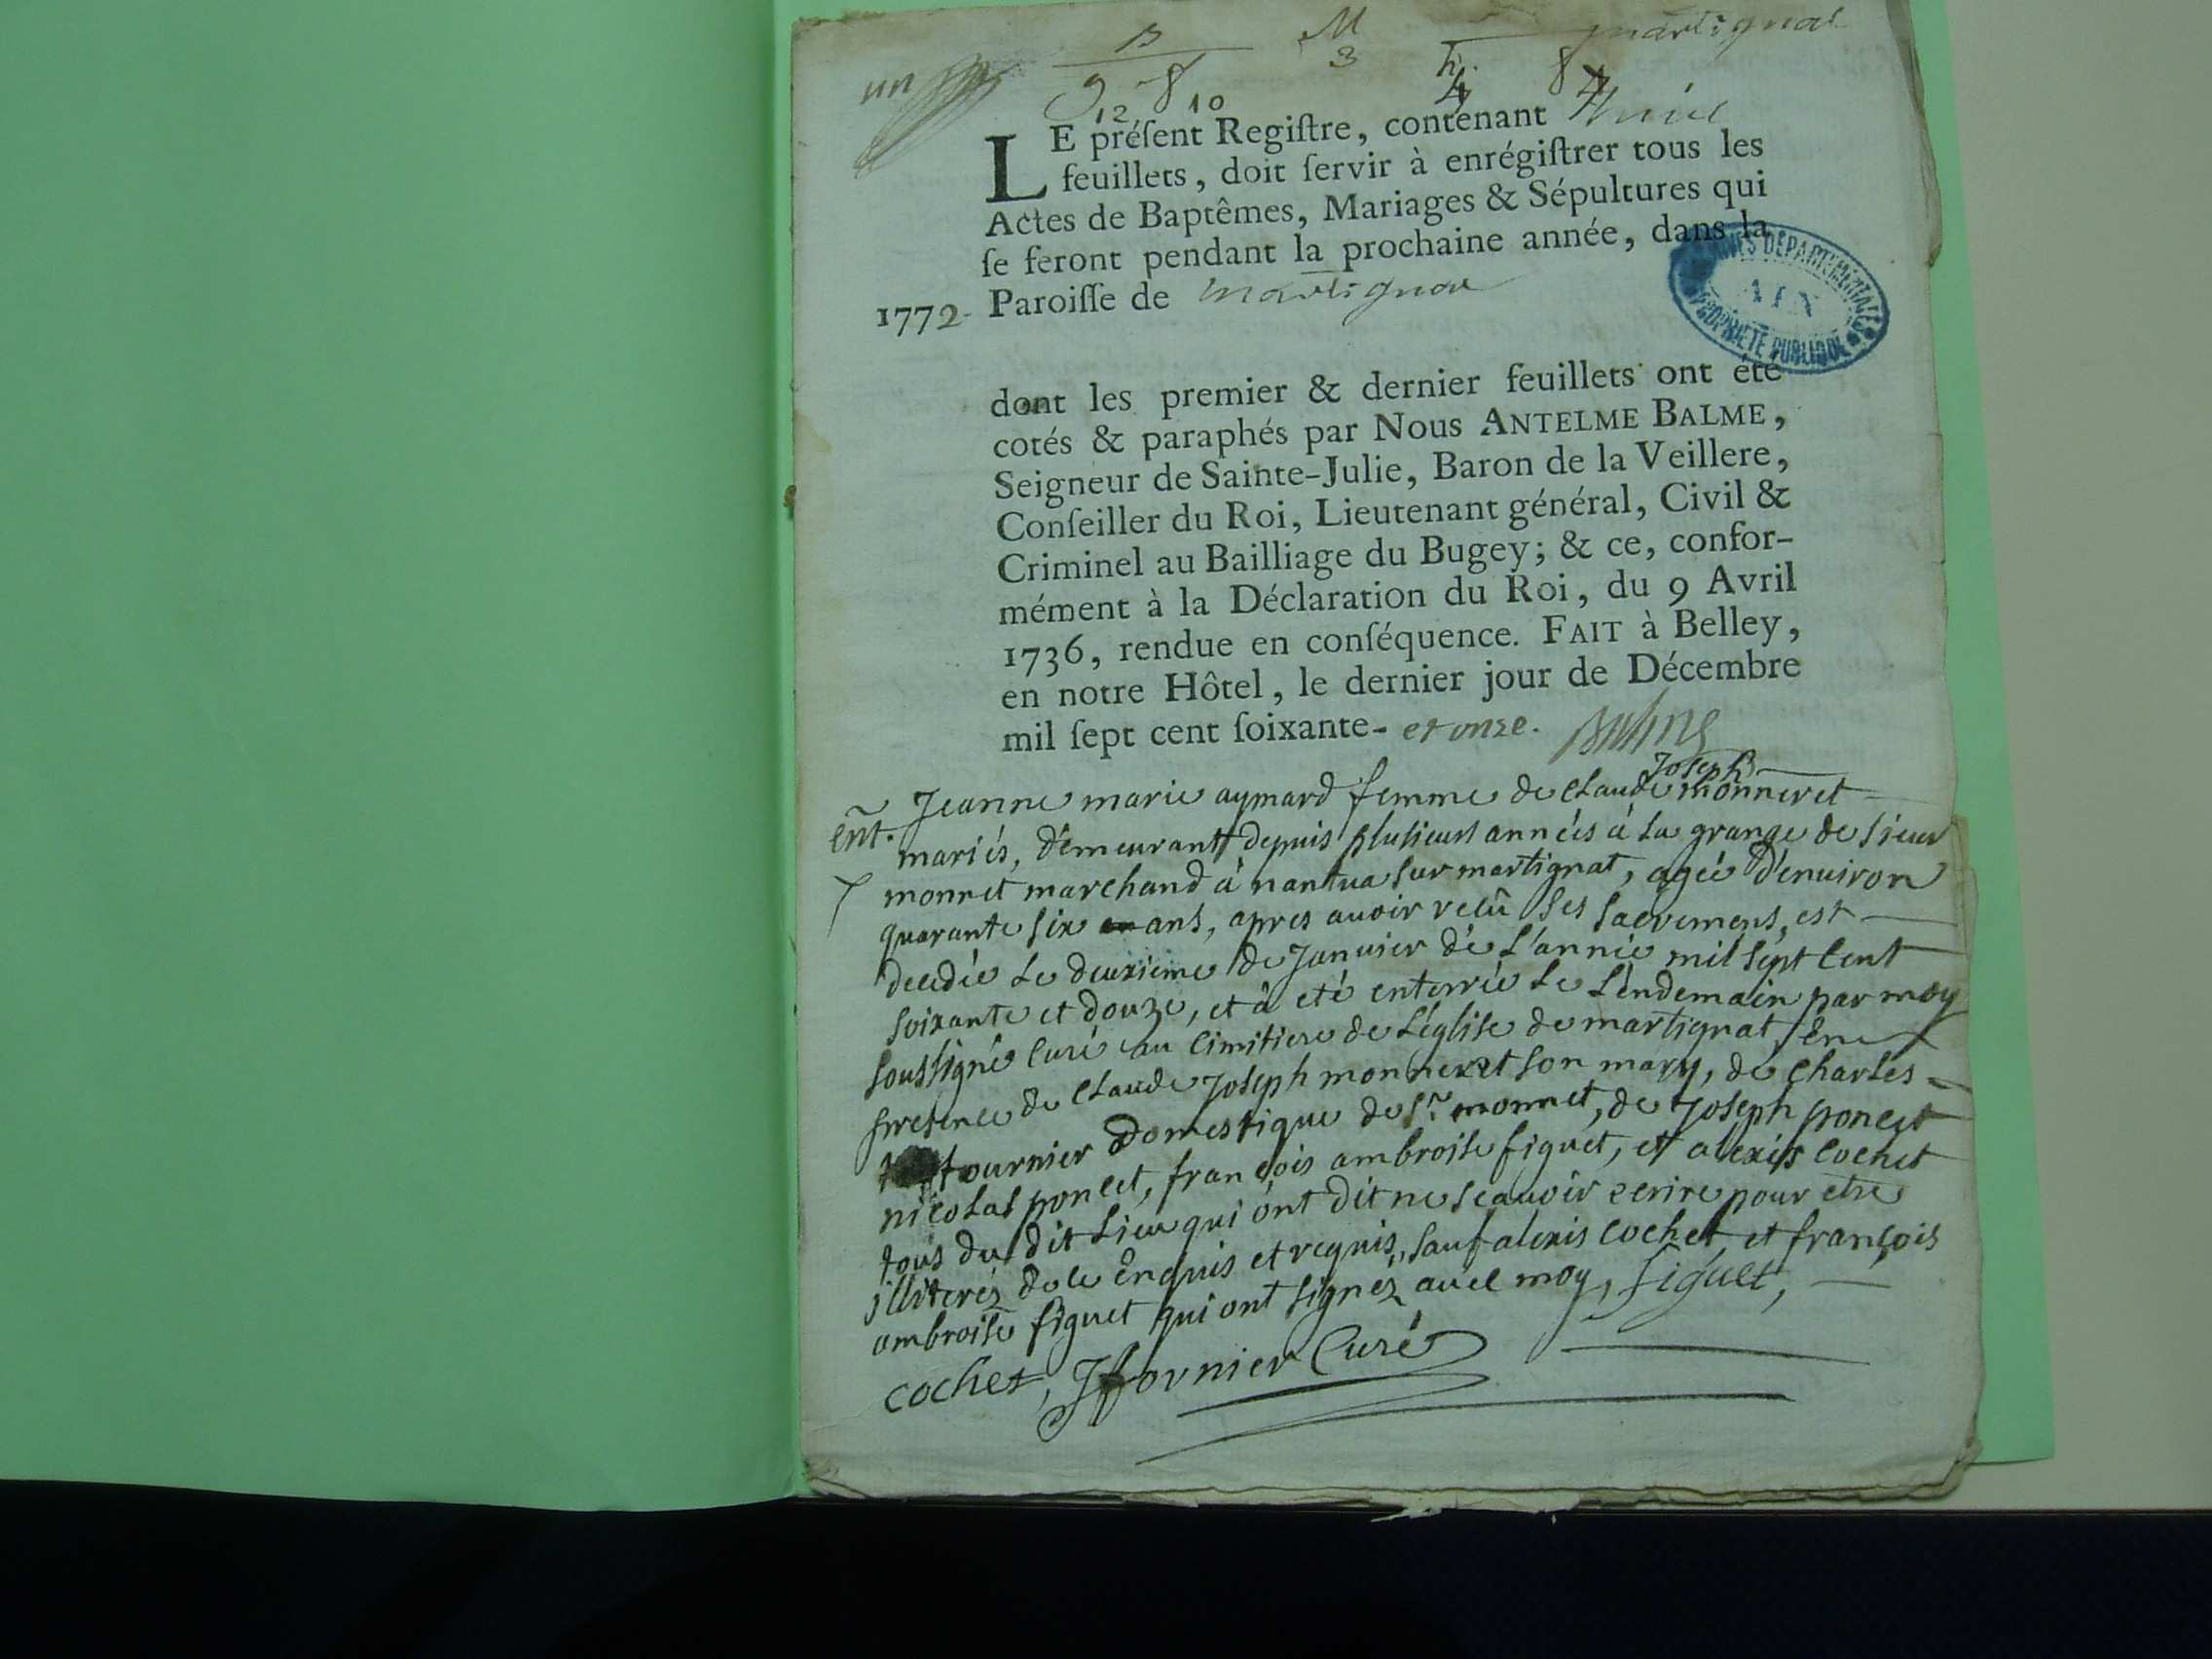 un B M h. martignat
9 8 3 4 8
12 10
LE préſent Regiſtre, contenant huict
feuillets, doit ſervir à enrégiſtrer tous les
Actes de Baptêmes, Mariages & Sépultures qui
ſe feront pendant la prochaine année, dans la
1772. Paroiſſe de martignat
ARCHIVES DÉPARTEMENTALES
AIN
PROPRIÉTÉ PUBLIQUE
dont les premier & dernier feuillets ont été
cotés & paraphés par Nous ANTELME BALME,
Seigneur de Sainte-Julie, Baron de la Veillere,
Conſeiller du Roi, Lieutenant général, Civil &
Criminel au Bailliage du Bugey; & ce, confor-
mément à la Déclaration du Roi, du 9 Avril
1736, rendue en conſéquence. FAIT à Belley,
en notre Hôtel, le dernier jour de Décembre
mil ſept cent ſoixante- et onze. Balme
Joseph
ent. Jeanne marie aymard femme de claude monneret
mariés, demeurant depuis plusieurs années à la grange de sieur
monnet marchand à nantua sur martignat, agée d'enuiron
quarante six ans, apres auoir recû ses sacremens, est
decedée le deuxieme de Januier de l'année mil sept cent
soixante et douze, et à eté enterrée le lendemain par moy
soussigné curé au cimitiere de l'église de martignat, en
presence de claude Joseph monneret son mary, de charles
tournier domestique de sr. monnet, de Joseph poncet
nicolas poncet, françois ambroise figuet, et alexis cochet
tous du dit lieu qui ont dit ne scauoir ecrire pour etre
illiterés de ce enquis et requis, sauf alexis cochet, et françois
ambroise figuet qui ont signéz auec moy, figuet,
cochet, Jfornier Curé